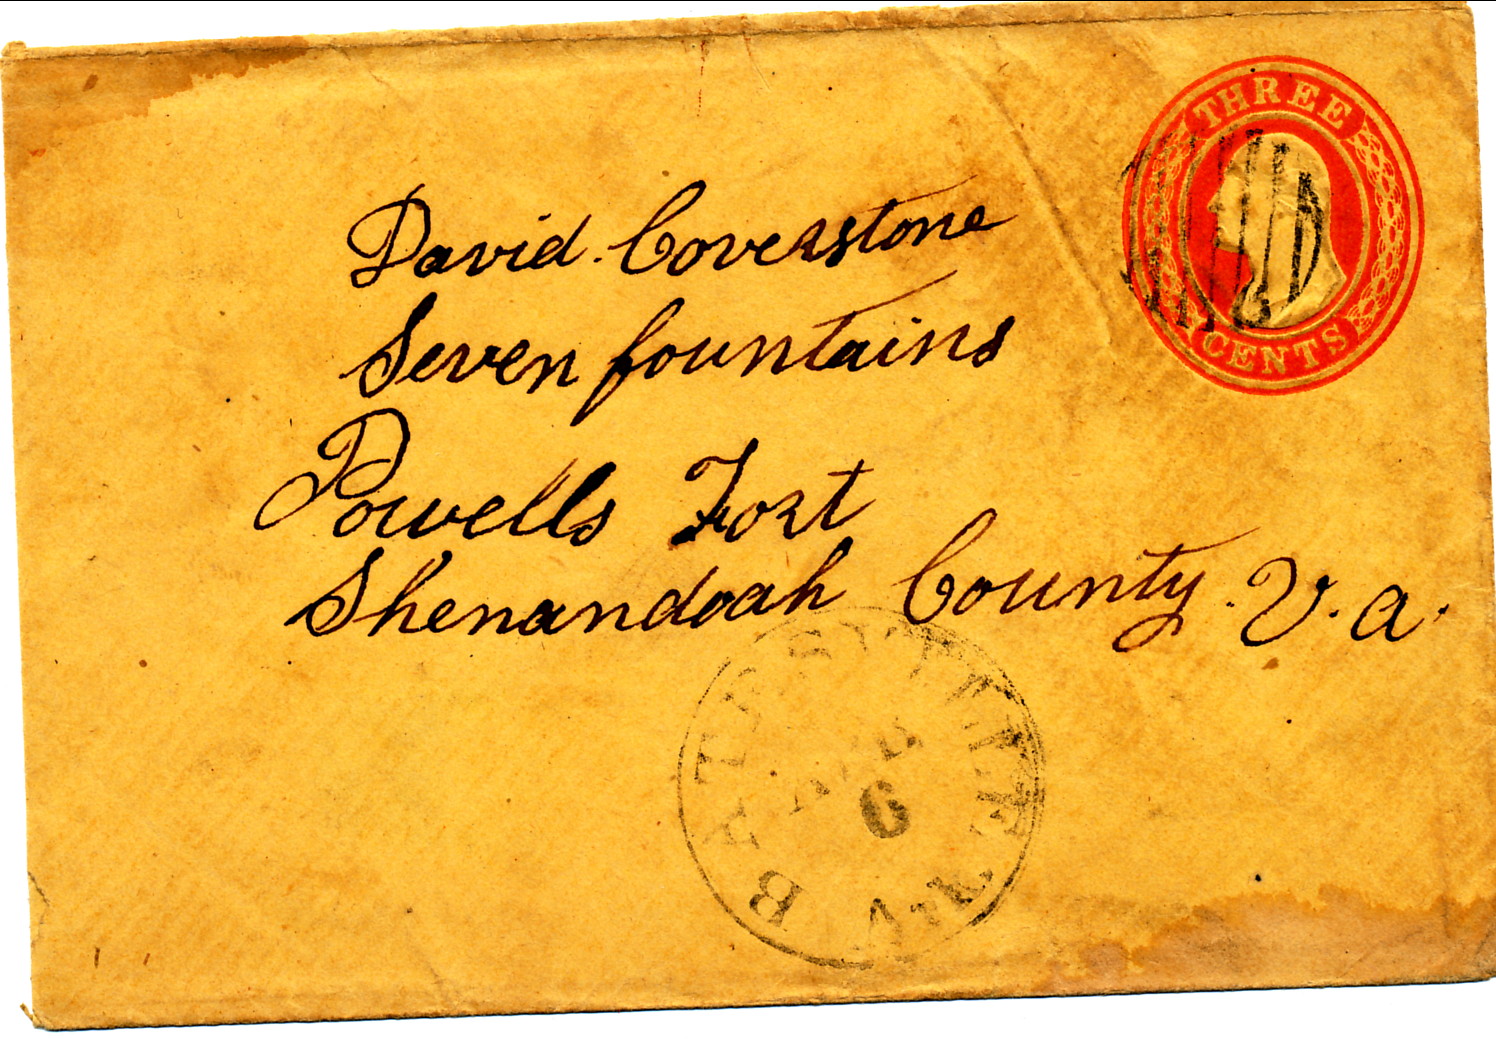 THREE
CENTS
David Coverstone
Seven fountains
Powells Fort
Shenandoah County V.a.
BATESVILLE
6
Ark.